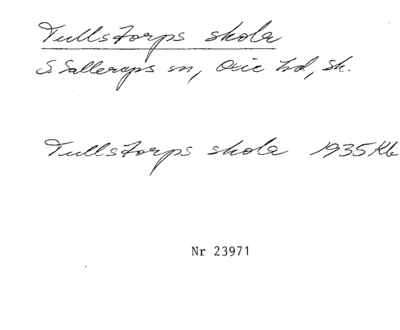 Tullstorps skola
S Sallerups sn, Oxie hd, Sk.
Tullstorps skola 1935 Kb
Nr 23971